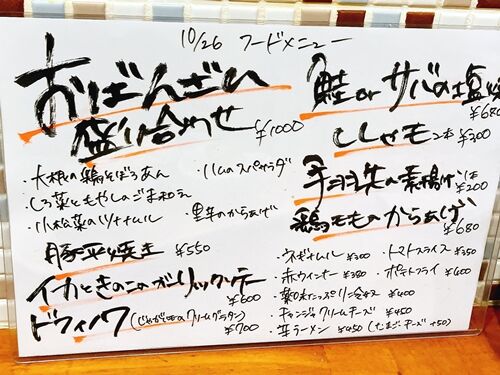 10/26 フードメニュー
おばんざい
盛り合わせ ¥1000
・大根の鶏そぼろあん
・ハムのスパサラダ
・しろ菜ともやしのごま和え
・小松菜のツナナムル
・里芋のからあげ
豚平焼き ¥550
イカときのこのガーリックソテー
¥600
ドフィノワ (じゃがいものクリームグラタン)
¥700
鮭orサバの塩焼
¥680
ししゃも 2本 ¥300
手羽先の素揚げ 1本
¥200
鶏モモのからあげ
¥680
・ネギナムル ¥300
・トマトスライス ¥350
・赤ウインナー ¥380
・ポテトフライ ¥400
¥400
・チャンジャクリームチーズ ¥450
・辛ラーメン ¥450 (たまご・チーズ +50)